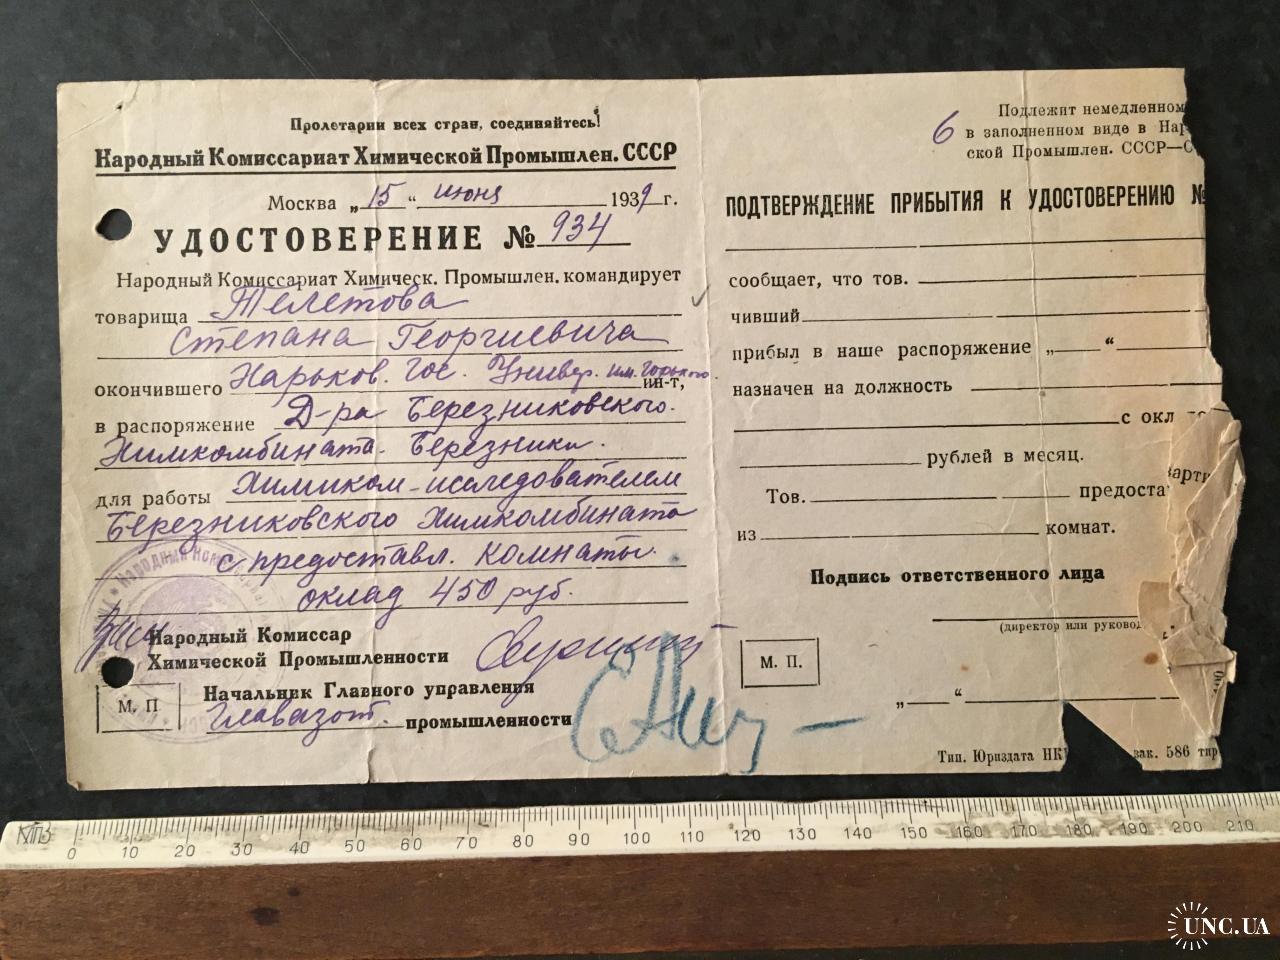 Пролетарии всех стран, соединяйтесь!
Народный Комиссариат Химической Промышлен. СССР
Москва „15“ июня 1939 г.
УДОСТОВЕРЕНИЕ № 934
Народный Комиссариат Химическ. Промышлен. командирует
товарища Телетова
Степана Георгиевича
окончившего Харьков. Гос. Универ. им. Горького ин-т,
в распоряжение Д-ра Березниковского
Химкомбината. Березники.
для работы Химиком-исследователем
Березниковского Химкомбината
с предоставл. комнаты.
оклад 450 руб.
Народный Комиссар
Химической Промышленности
М. П
Начальник Главного управления
Главазот. промышленности
6
Подлежит немедленном
в заполненном виде в Нар
ской Промышлен. СССР—С
ПОДТВЕРЖДЕНИЕ ПРИБЫТИЯ К УДОСТОВЕРЕНИЮ №
сообщает, что тов.
чивший
прибыл в наше распоряжение „ “
назначен на должность
с окл
рублей в месяц.
Тов. предоста
варти
из комнат.
Подпись ответственного лица
(директор или руковод
М. П.
„ “
Тип. Юриздата НК зак. 586 тир
0 10 20 30 40 50 60 70 80 90 100 110 120 130 140 150 160 170 180 190 200 210
UNC.UA